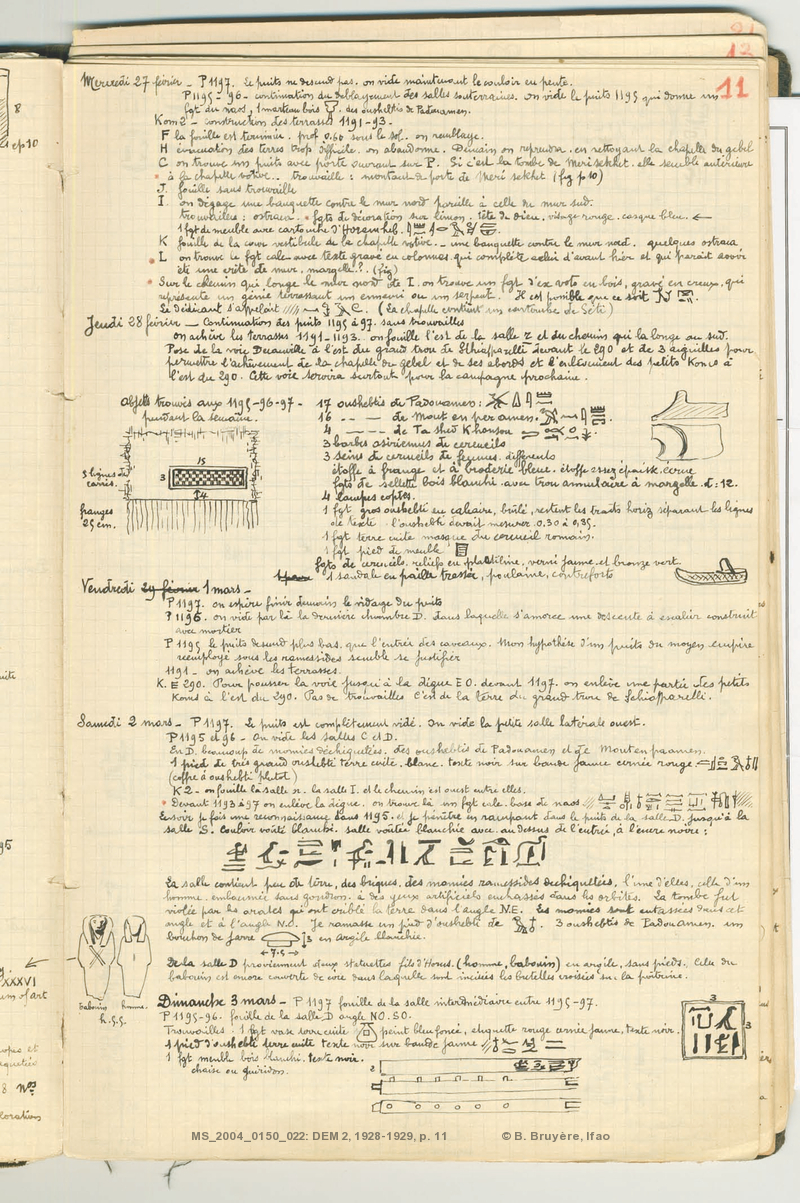 11
Mercredi 27 février - P 1197. Le puits ne descend pas. on vide maintenant le couloir en pente.
P 1195-96 - continuation du déblayement des salles souterraines. on vide le puits 1195 qui donne un
fgt du naos, 1 marteau bois, des oushebtis de Padouamen.
Kom 2 - construction des terrasses 1191-93.
F la fouille est terminée. prof 0.60 sous le sol. on remblaye.
H évacuation des terres trop difficile. on abandonne. Demain on reprendra en nettoyant la chapelle du gebel
C on trouve un puits avec porte ouvrant sur P. Si c'est la tombe de Meri sekhet. elle semble antérieure
à la chapelle votive. trouvaille : montant de porte de Meri sekhet (fig p 10)
J. fouille sans trouvaille
I. on dégage une banquette contre le mur nord pareille à celle du mur sud.
trouvailles : ostraca. fgts de décoration sur limon. tête de dieu. visage rouge. casque bleu.
1 fgt de meuble avec cartouche d'Horemheb.
K fouille de la cour vestibule de la chapelle votive. une banquette contre le mur nord. quelques ostraca
L on trouve 1 fgt calc. avec texte gravé en colonnes qui complète celui d'avant hier et qui paraît avoir
été une crête de mur. margelle ?. (fig)
Sur le chemin qui longe le mur nord de I. on trouve un fgt d'ex voto en bois, gravé en creux, qui
représente un génie terrassant un ennemi ou un serpent. Il est possible que ce soit
Le dédicant s'appelait (La chapelle contient un cartouche de Séti)
Jeudi 28 février - Continuation des puits 1195 à 97. sans trouvailles
on achève les terrasses 1191-1193. on fouille l'est de la salle I et du chemin qui la longe au sud.
Pose de la voie Decauville à l'est du grand trou de Schiaparelli devant le 290 et de 3 aiguilles pour
permettre l'achèvement de la chapelle du gebel et de ses abords et l'enlèvement des petits Koms à
l'est du 290. Cette voie servira surtout pour la campagne prochaine.
objets trouvés aux 1195-96-97 -
pendant la semaine.
17 oushebtis de Padouamen :
16 - - - de Mout en per amen.
4 - - - de Ta shed Khonsou
3 barbes osiriennes de cercueils
3 seins de cercueils de femmes. différents
étoffe à frange et à broderie bleue. étoffe assez épaisse. écrue
fgts de sellette bois blanchi. avec trou annulaire à margelle. d : 12.
4 lampes coptes.
1 fgt gros oushebti en calcaire, brûlé, restent les traits horiz séparant les lignes
de texte. l'oushebti devait mesurer 0.30 à 0,35.
1 fgt terre cuite masque du cercueil romain.
1 fgt pied de meuble
fgts de cercueils. reliefs en plastiline, verni jaune et bronze vert
1 sandale en paille tressée, poulaine, contreforts
5 lignes de
carrés.
15
3
4
franges
25 cm.
Vendredi 29 février 1 mars -
P 1197. on espère finir demain le vidage du puits
P 1196. on vide par là la dernière chambre D. dans laquelle s'amorce une descente à escalier construit
avec mortier
P 1195 le puits descend plus bas. que l'entrée des caveaux. Mon hypothèse d'un puits du moyen empire
réemployé sous les ramessides semble se justifier
1191 - on achève les terrasses.
K. E 290. Pour pousser la voie jusqu'à la digue E O. devant 1197. on enlève une partie des petits
Koms à l'est du 290. Pas de trouvailles. C'est de la terre du grand trou de Schiaparelli.
Samedi 2 mars - P 1197. Le puits est complètement vidé. On vide la petite salle latérale ouest.
P 1195 et 96 - On vide les salles C et D.
En D. beaucoup de momies déchiquetées. des oushebtis de Padouamen et de Moutenpaamen.
1 pied de très grand oushebti terre cuite. blanc. texte noir sur bande jaune cernée rouge.
(coffre à oushebti plutôt)
K 2 - on fouille la salle . la salle I. et le chemin est ouest entre elles.
Devant 1193 à 97 on enlève la digue. on trouve là un fgt calc. base de naos
Le soir je fais une reconnaissance dans 1195. et je pénètre en rampant dans le puits de la salle D. jusqu'à la
salle S. Couloir voûté blanchi. salle voûtée blanchie avec au dessus de l'entrée, à l'encre noire :
La salle contient peu de terre, des briques. des momies ramessides déchiquetées, l'une d'elles, celle d'un
homme, embaumée sans goudron. a des yeux artificiels enchassés dans les orbites. La tombe fut
violée par les arabes qui ont criblé la terre dans l'angle N.E. Les momies sont entassées dans cet
angle et à l'angle N.O. Je ramasse un pied d'oushebti de 3 oushebtis de Padouamen. un
bouchon de jarre 3 en argile blanchie.
7.5
De la salle D proviennent deux statuettes fils d'Horus. (homme, babouin) en argile, sans pieds. Celui du
babouin est encore couverte de cire dans laquelle sont incisées les bretelles croisées sur la poitrine.
babouin homme.
Dimanche 3 mars - P 1197 fouille de la salle intermédiaire entre 1195-97.
P 1195-96. fouille de la salle D angle NO. SO.
Trouvailles : 1 fgt vase terre cuite peint bleu foncé, étiquette rouge cernée jaune, texte noir.
1 pied d'oushebti terre cuite texte noir sur bande jaune
1 fgt meuble bois blanchi. texte noir.
chaise ou guéridon.
2
3
3
8
p 10
XXXVI
MS_2004_0150_022: DEM 2, 1928-1929, p. 11 © B. Bruyère, Ifao